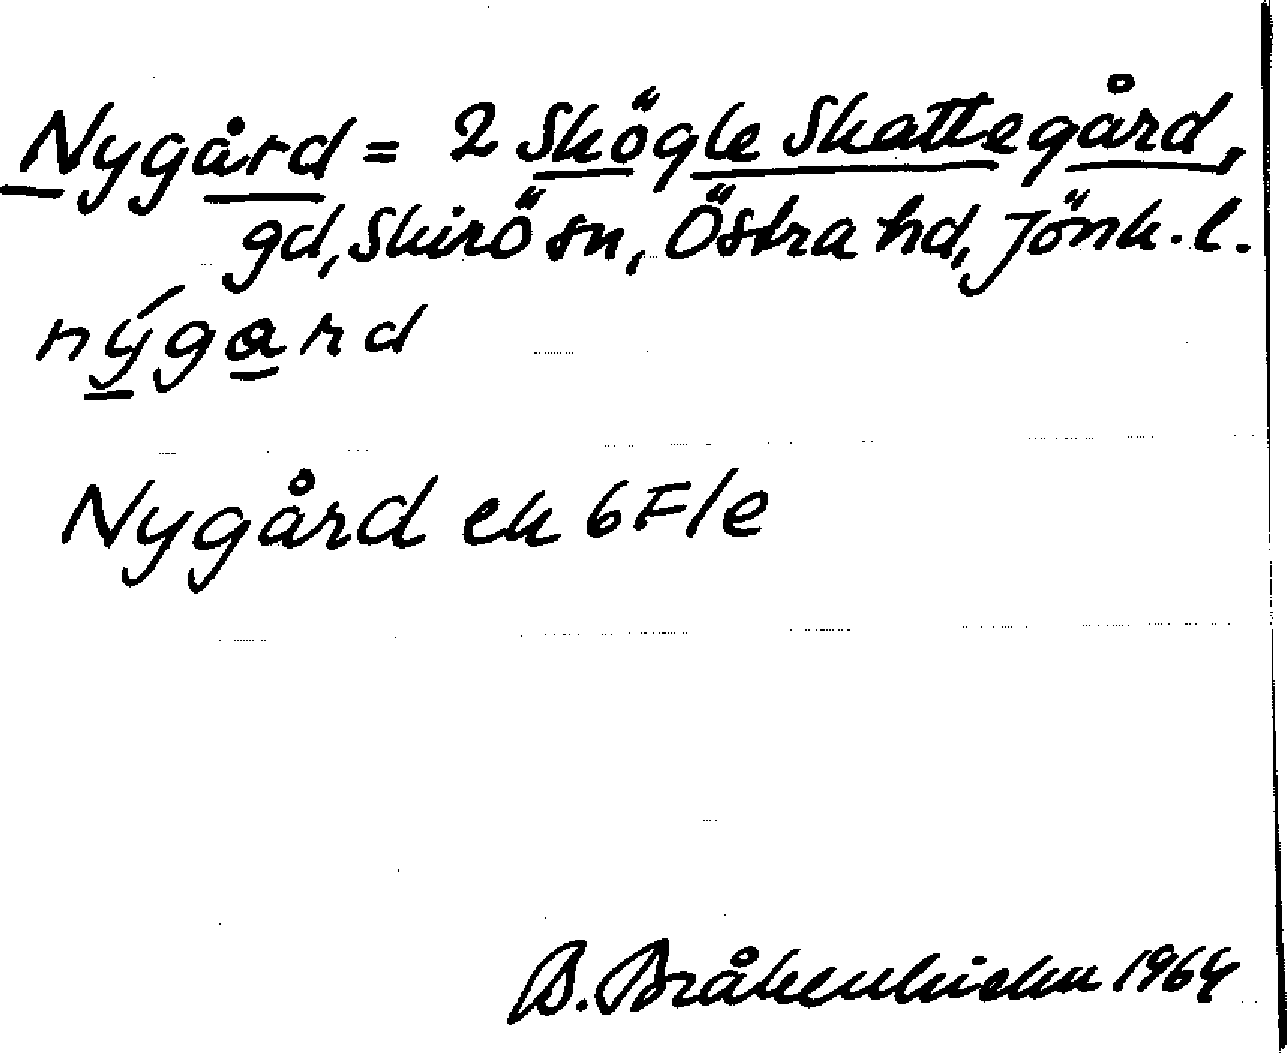 Nygård = 2 Skögle Skattegård,
gd, Skirö sn, Östra hd, Jönk. l.
nýgard
Nygård ek 6F/e
B. Bråkenhielm 1964